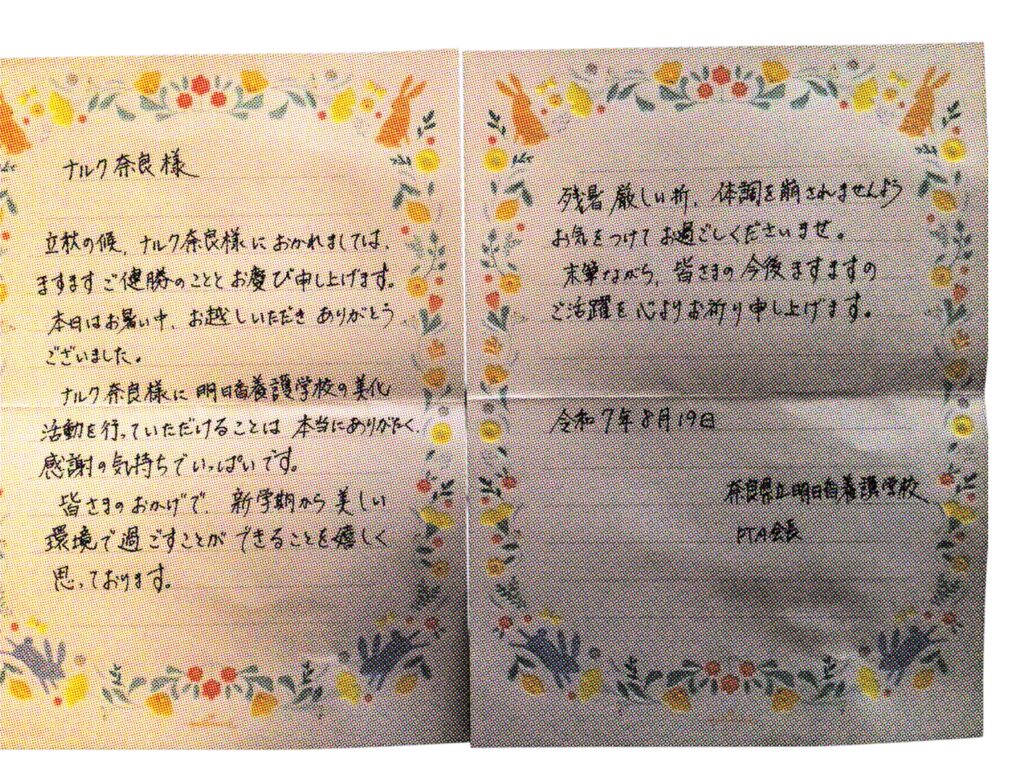 ナルク奈良様
立秋の候、ナルク奈良様におかれましては、
ますますご健勝のこととお慶び申し上げます。
本日はお暑い中、お越しいただきありがとう
ございました。
ナルク奈良様に明日香養護学校の美化
活動を行っていただけることは本当にありがたく、
感謝の気持ちでいっぱいです。
皆さまのおかげで、新学期から美しい
環境で過ごすことができることを嬉しく
思っております。
残暑厳しい折、体調を崩されませんよう
お気をつけてお過ごしくださいませ。
末筆ながら、皆さまの今後ますますの
ご活躍を心よりお祈り申し上げます。
令和7年8月19日
奈良県立明日香養護学校
PTA会長